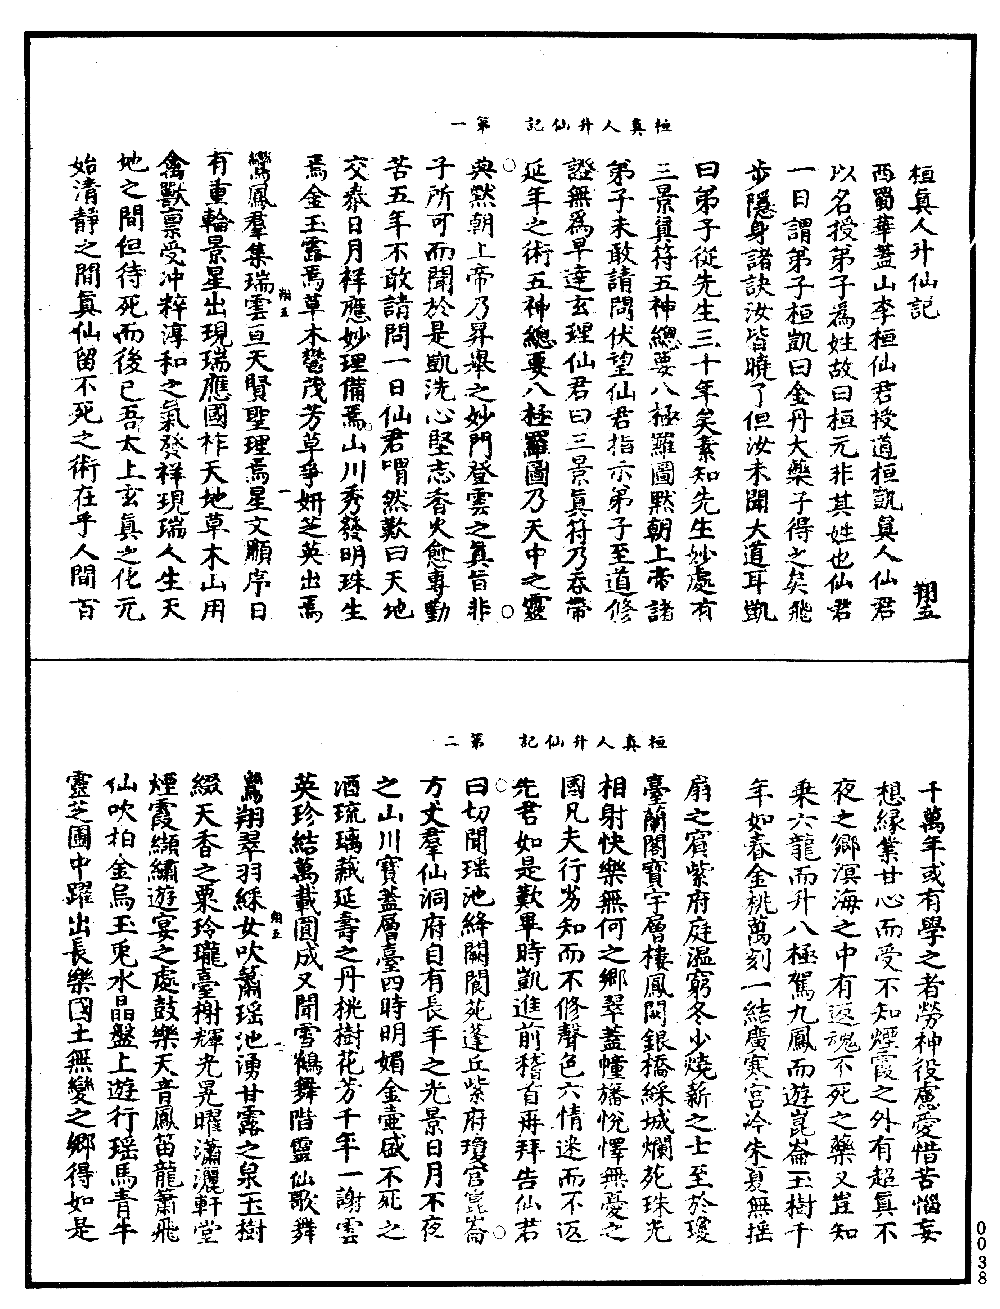 桓真人升仙記　第一
桓真人升仙記　翔五
西蜀華蓋山李桓仙君授道桓凱真人仙君
以名授弟子為姓故曰桓元非其姓也仙君
一日謂弟子桓凱曰金丹大藥子得之矣飛
步隱身諸訣汝皆曉了但汝未聞大道耳凱
曰弟子從先生三十年矣素知先生妙處有
三景真符五神總要八極羅圖默朝上帝諸
弟子未敢請問伏望仙君指示弟子至道修
證無為早達玄理仙君曰三景真符乃吞帶
延年之術五神總要八極羅圖乃天中之靈
典默朝上帝乃昇舉之妙門登雲之真旨非
子所可而聞於是凱洗心堅志香火愈專勤
苦五年不敢請問一日仙君喟然歎曰天地
交泰日月祥應妙理備焉山川秀發明珠生
焉金玉露焉草木鬱茂芳草爭妍芝英出焉
翔五　一
鸞鳳羣集瑞雲亘天賢聖理焉星文順序日
有重輪景星出現瑞應國祚天地草木山用
禽獸禀受冲粹淳和之氣發祥現瑞人生天
地之間但待死而後已吾太上玄真之化元
始清靜之間真仙留不死之術在乎人間百
桓真人升仙記　第二
千萬年或有學之者勞神役慮愛惜苦惱妄
想緣業甘心而受不知煙霞之外有超真不
夜之鄉溟海之中有返魂不死之藥又豈知
乘六龍而升八極駕九鳳而遊崑崙玉樹千
年如春金桃萬刻一結廣寒宮冷朱夏無摇
扇之賓紫府庭温窮冬少燒薪之士至於瓊
臺蘭閣寶宇層樓鳳闕銀橋綵城爛苑珠光
相射快樂無何之鄉翠蓋幢旛悅懌無憂之
國凡夫行劣知而不修聲色六情迷而不返
先君如是歎畢時凱進前稽首再拜告仙君
曰切聞瑶池絳闕閬苑蓬丘紫府瓊宮崑崙
方丈羣仙洞府自有長年之光景日月不夜
之山川寶蓋層臺四時明媚金壺盛不死之
酒琉璃藏延壽之丹桃樹花芳千年一謝雲
英珍結萬載圓成又聞雪鶴舞階靈仙歌舞
翔五　二
鸞翔翠羽綵女吹簫瑶池湧甘露之泉玉樹
綴天香之粟玲瓏臺榭輝光晃曜瀟灑軒堂
煙霞纈繡遊宴之處鼓樂天音鳳笛龍簫飛
仙吹柏金烏玉兎水晶盤上遊行瑶馬青牛
靈芝圃中躍出長樂國土無變之鄉得如是
0038